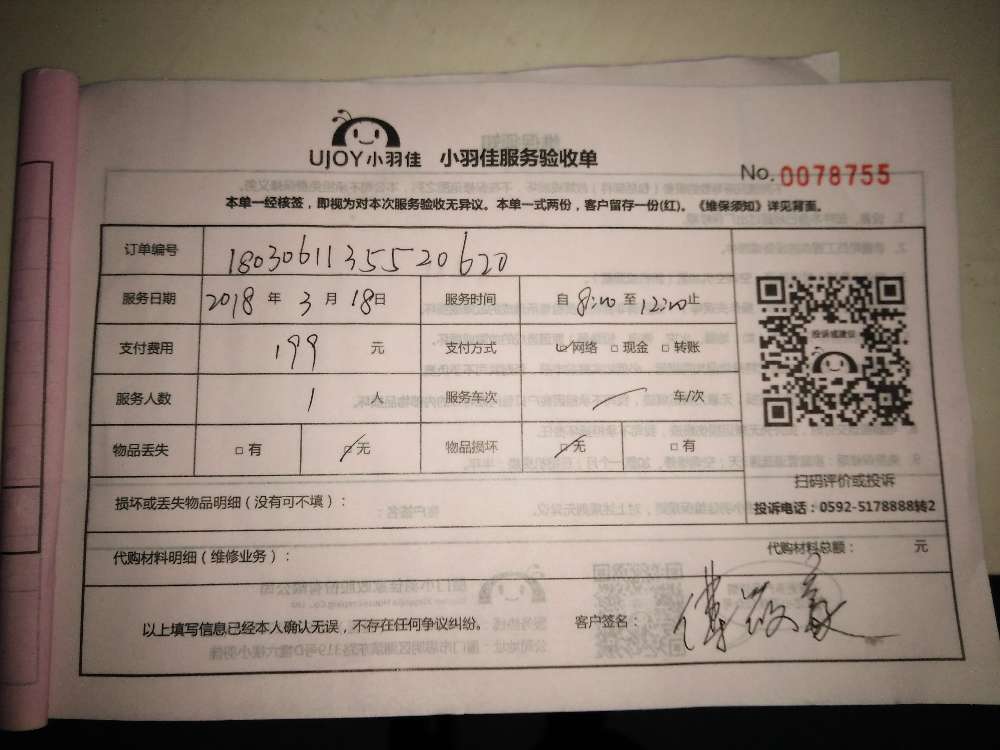 UJOY小羽佳 小羽佳服务验收单
No. 0078755
本单一经核签，即视为对本次服务验收无异议。本单一式两份，客户留存一份(红)。《维保须知》详见背面。
订单编号 18030611355520620
服务日期 2018 年 3 月 18 日 服务时间 自 8:00 至 12:00 止
支付费用 199 元 支付方式 ☑ 网络 □ 现金 □ 转账
投诉或建议
服务人数 1 人 服务车次 / 车/次
物品丢失 □ 有 ☑ 无 物品损坏 ☑ 无 □ 有
扫码评价或投诉
投诉电话：0592-5178888转2
损坏或丢失物品明细（没有可不填）：
代购材料明细（维修业务）： 代购材料总额： 元
以上填写信息已经本人确认无误，不存在任何争议纠纷。 客户签名：